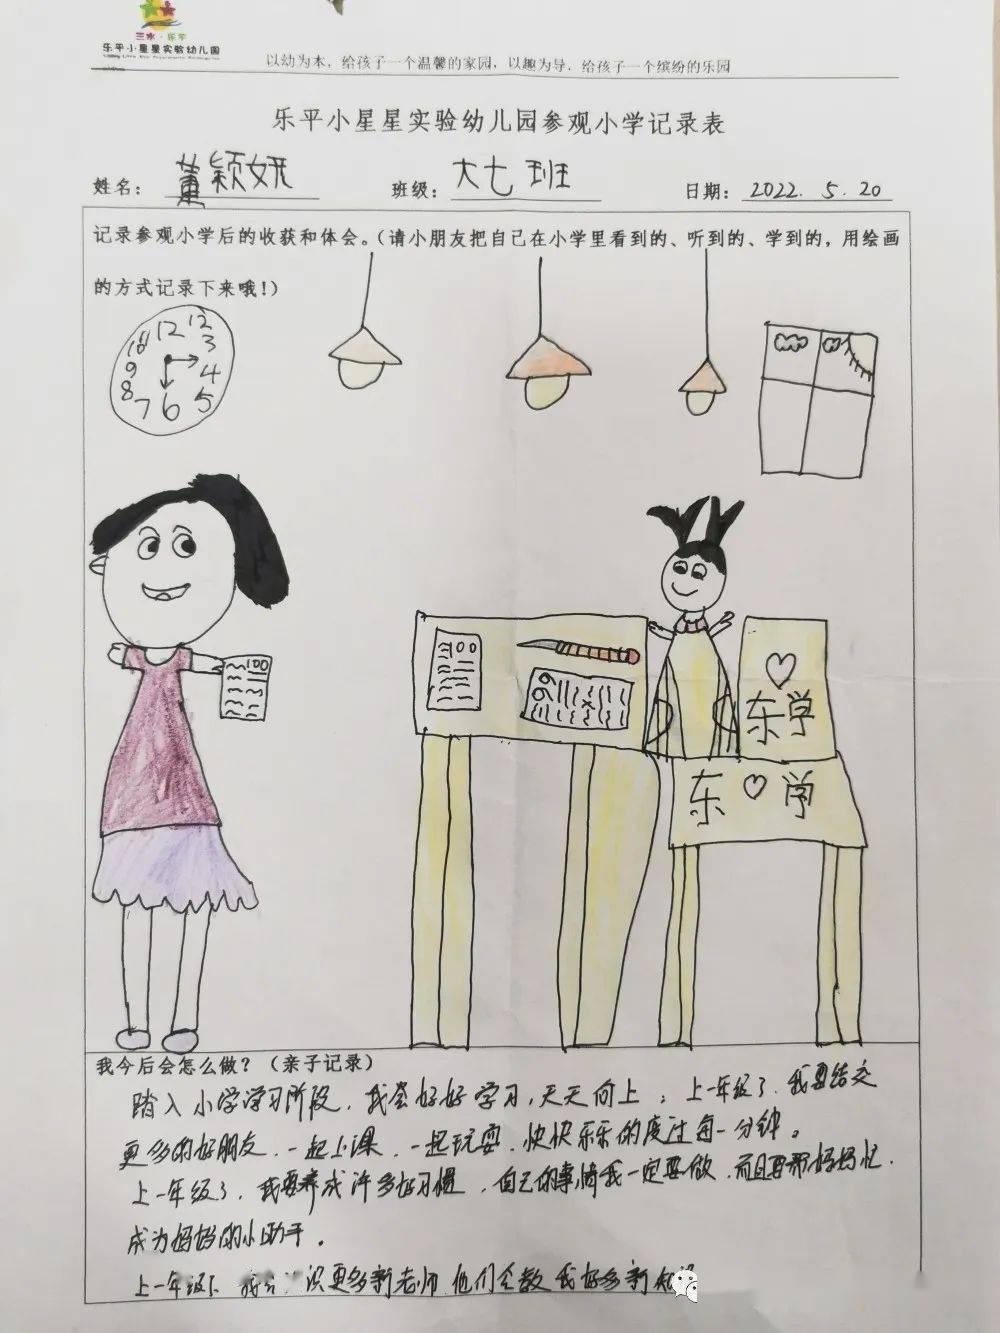 三水·乐平
乐平小星星实验幼儿园
以幼为本，给孩子一个温馨的家园，以趣为导，给孩子一个缤纷的乐园
乐平小星星实验幼儿园参观小学记录表
姓名：董颖妍 班级：大七班 日期：2022.5.20
记录参观小学后的收获和体会。（请小朋友把自己在小学里看到的、听到的、学到的，用绘画
的方式记录下来哦！）
12 12 3 4 5 6 7 8 9 10
100
100
99
东学
东学
我今后会怎么做？（亲子记录）
踏入小学学习阶段，我会好好学习，天天向上；上一年级了，我要结交
更多的好朋友，一起上课，一起玩耍，快快乐乐的度过每一分钟。
上一年级了，我要养成许多好习惯，自己的事情我一定要做，而且要帮妈妈忙，
成为妈妈的小助手。
上一年级 识更多新老师，他们会教我好多新知